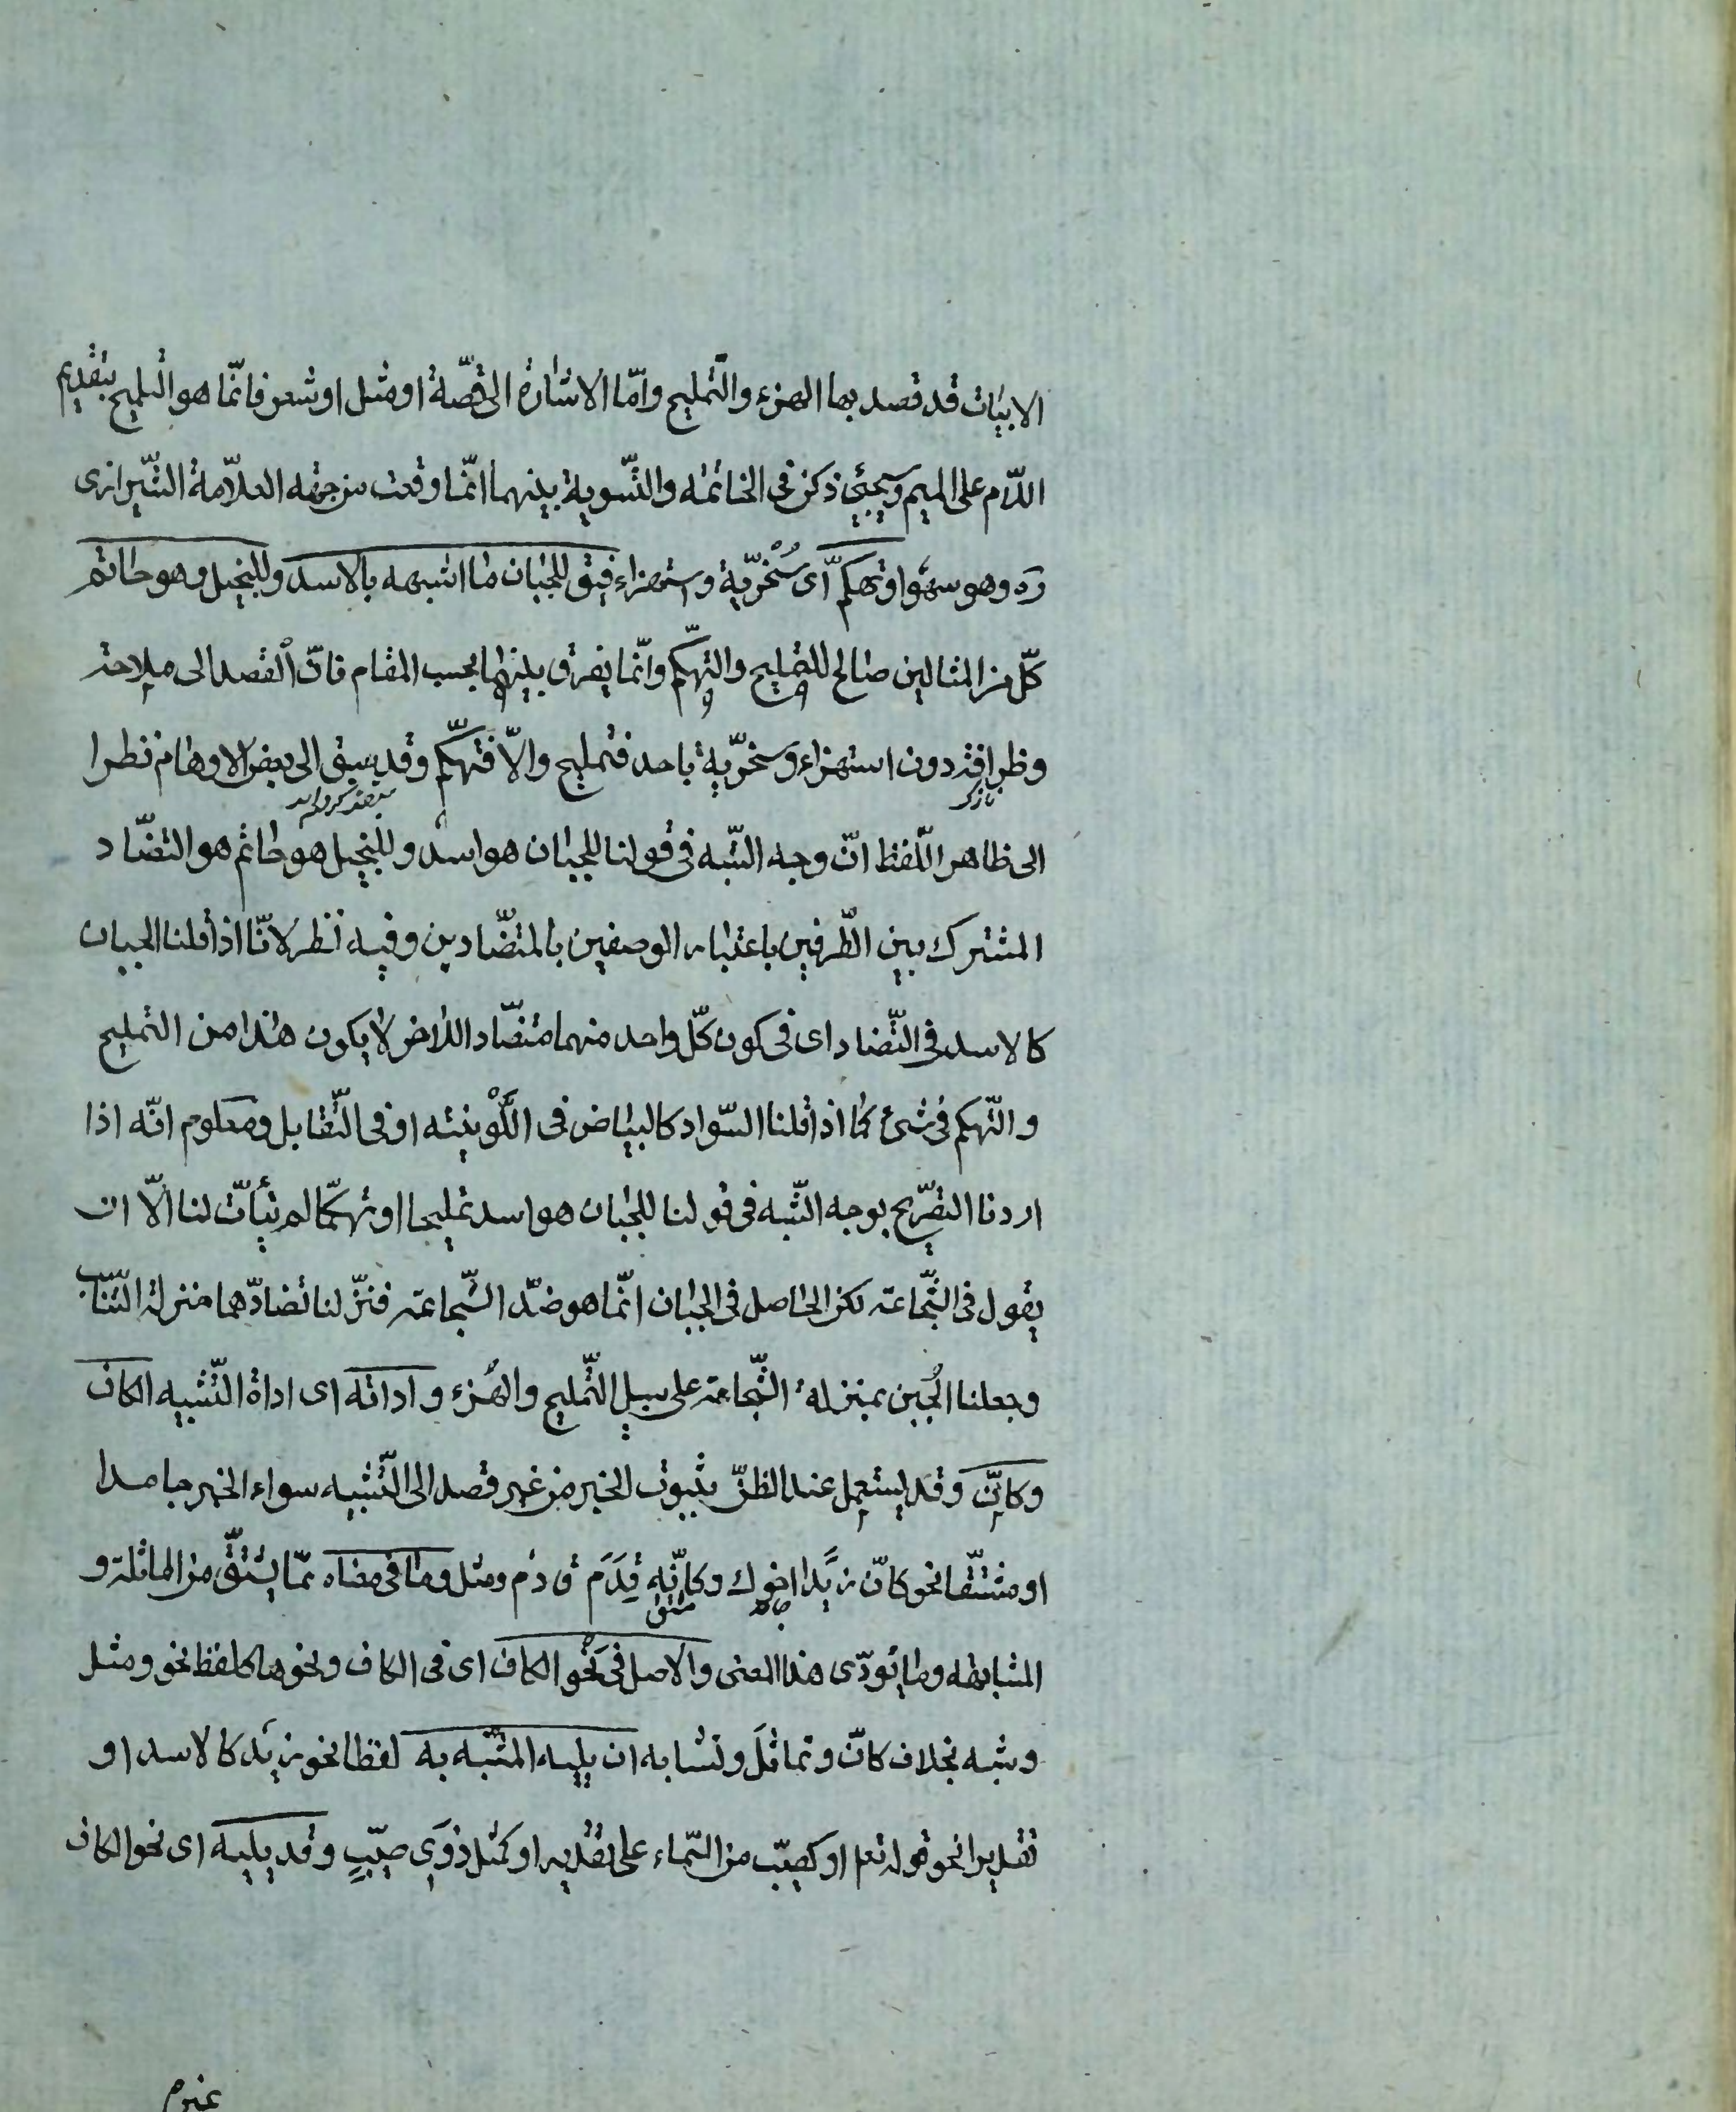 الابيات قد قصد بها الهزء والتمليح وامّا الاشارة الى قصّة او مثل او شعر فانّما هو التلميح بتقديم
اللّام على الميم وسيجيئ ذكره فى الخاتمه والتّسوية بينهما انّما وقعت من جهه العلاّمة الشّيرازى
ره وهو سهو او تهكّم اى سُخْرّية واستهزاء فيق للجبان ما اشبهه بالاسد وللبخيل وهو حاتم
كلّ من المثالين صالح للتمليح والتهكّم وانّما يفرق بينهما بحسب المقام فانّ القصد الى ملاحة
وظرافة دون استهزاء وسخرّية باحد فتمليح والاّ فتهكّم وقد يسبق الى بعض الاوهام نظرا
الى ظاهر اللّفظ انّ وجه الشّبه فى قولنا للجبان هو اسد وللبخيل هو حاتم هو التضّاد
المشترك بين الطّرفين باعتبار الوصفين بالمتضّادين وفيه نظر لانّا اذا قلنا الجبان
كالاسد فى التّضاد اى فى كون كلّ واحد منهما متضّاد اللاخر لا يكون هذا من التمليح
والتّهكم فى شئ كما اذا قلنا السّواد كالبياض فى اللَّوْنيّته او فى التّقابل ومعلوم انّه اذا
اردنا التصّريح بوجه الشّبه فى قولنا للجبان هو اسد تمليحا او تهكّما لم يتأتّ لنا الاّ ان
يقول فى الشّجاعة لكن الحاصل فى الجبان انّما هو ضدّ الشّجاعة فنزّلنا تضادّهما منزلة التّناسب
وجعلنا الجُبن بمنزلة الشّجاعة على سبيل التّمليح والهُزء واداته اى اداة التّشبيه الكاف
وكانّ وقد يستعمل عند الظنّ بثبوت الخبر من غير قصد الى التّشبيه سواء الخبر جامدا
او مشتّقا نحو كانّ زيدا اخوك وكانّه قِدَم ق دم ومثل وما فى معناه ممّا يشتقّ من المماثلة و
المشابهه وما يؤدّى هذا المعنى والاصل فى نَحْو الكاف اى فى الكاف ونحوها كلفظ نحو ومثل
وشبه بخلاف كانّ وتماثل وتشابه ان يليه المشبّه به لفظا نحو زيد كالاسد او
تقديرا نحو قوله تعم او كصيّب من السّماء على تقدير او كمثل ذوى صيّبٍ وقد يليه اى نحو الكاف